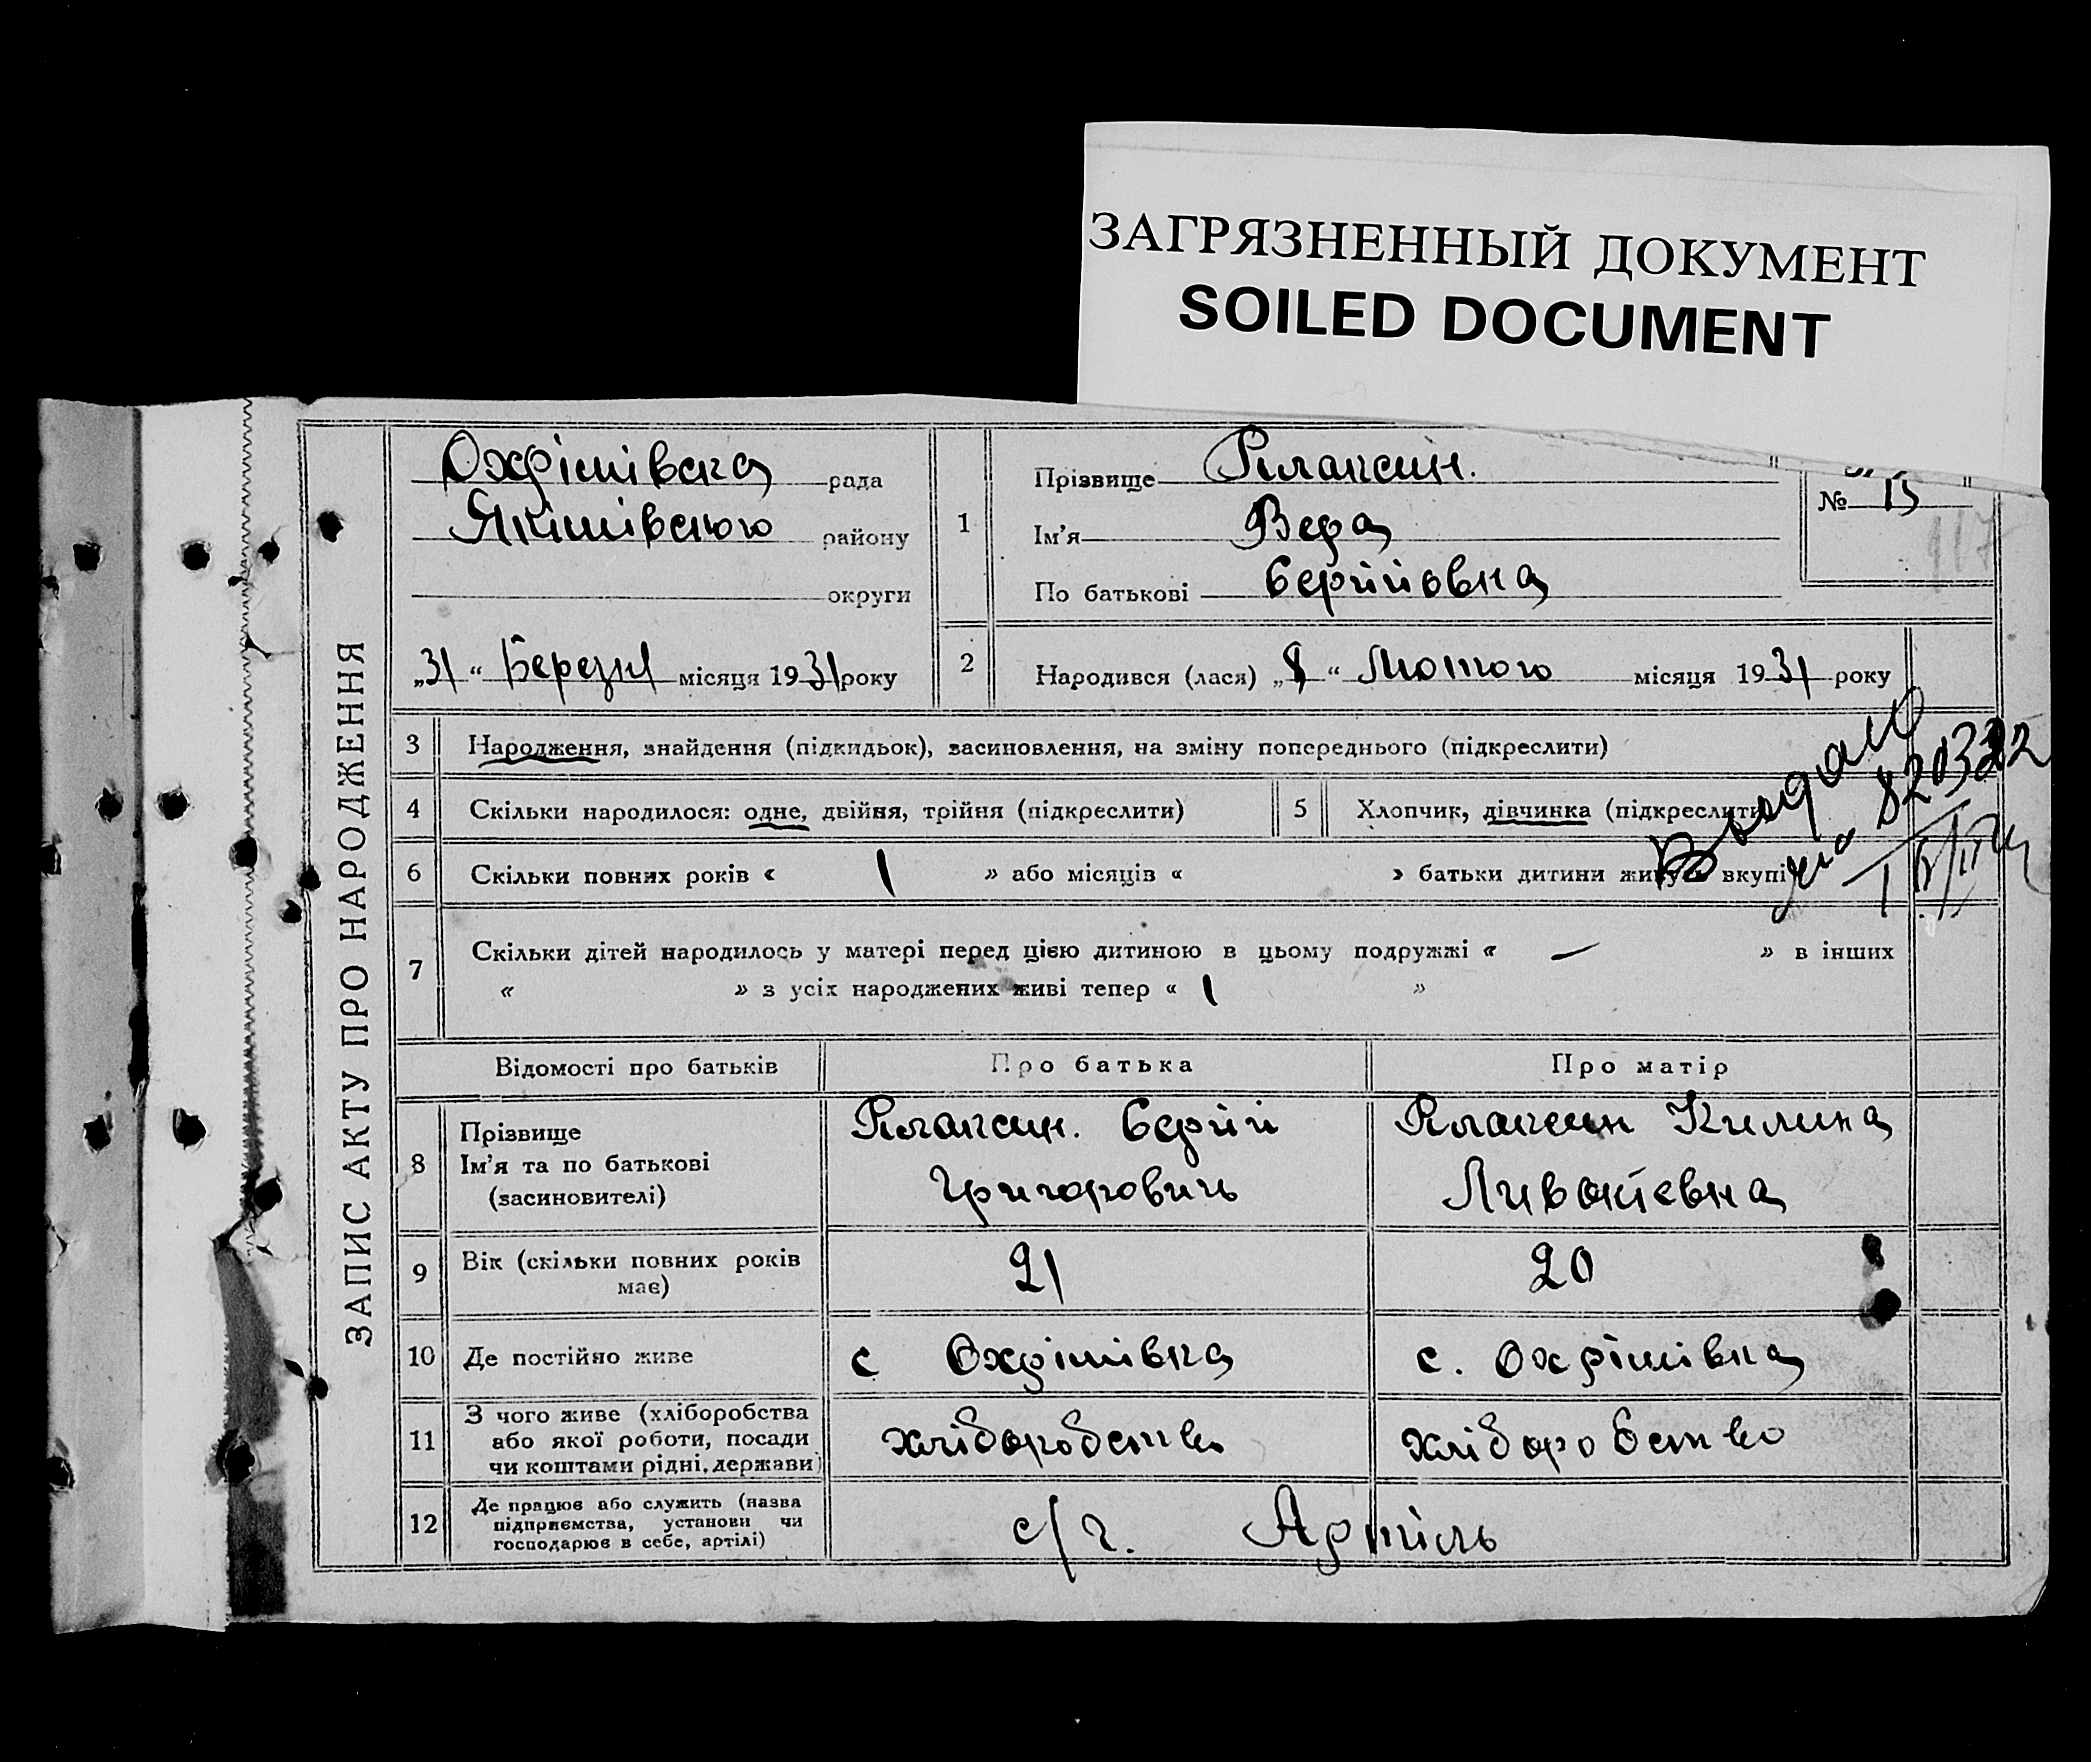 ЗАГРЯЗНЕННЫЙ ДОКУМЕНТ
SOILED DOCUMENT
ЗАПИС АКТУ ПРО НАРОДЖЕННЯ
Охфімівска рада
Якимівського району
округи
„31“ Березня місяця 1931 року
1
Прізвище Плаксин.
Ім'я Вера
По батькові Сергійовна
№ 15
117
2 Народився (лася) „8“ Лютого місяця 1931 року
3 Народження, знайдення (підкидьок), засиновлення, на зміну попереднього (підкреслити)
4 Скільки народилося: одне, двійня, трійня (підкреслити)
5 Хлопчик, дівчинка (підкреслити)
6 Скільки повних років « 1 » або місяців « » батьки дитини живуть вкупі
7 Скільки дітей народилось у матері перед цією дитиною в цьому подружжі « — » в інших
« » з усіх народжених живі тепер « 1 »
Відомості про батьків Про батька Про матір
8 Прізвище
Ім'я та по батькові
(засиновителі)
Плаксин. Сергій
Григорович
Плаксин Килина
9 Вік (скільки повних років
має)
21 20
10 Де постійно живе с Охфімівка с. Охфімівка
11 З чого живе (хліборобства
або якої роботи, посади
чи коштами рідні, держави)
хліборобство хліборобство
12 Де працює або служить (назва
підприємства, установи чи
господарює в себе, артілі)
с/г. Артіль